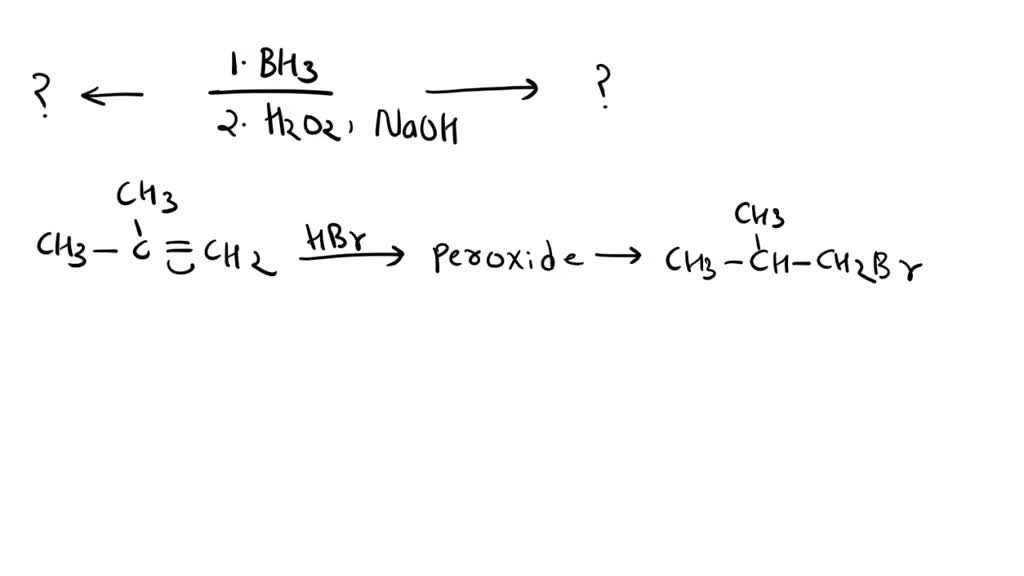 ? ← 1. BH3 → ?
2. H2O2, NaOH
CH3
CH3
CH3 – C = CH2 HBr → peroxide → CH3 – CH – CH2Br